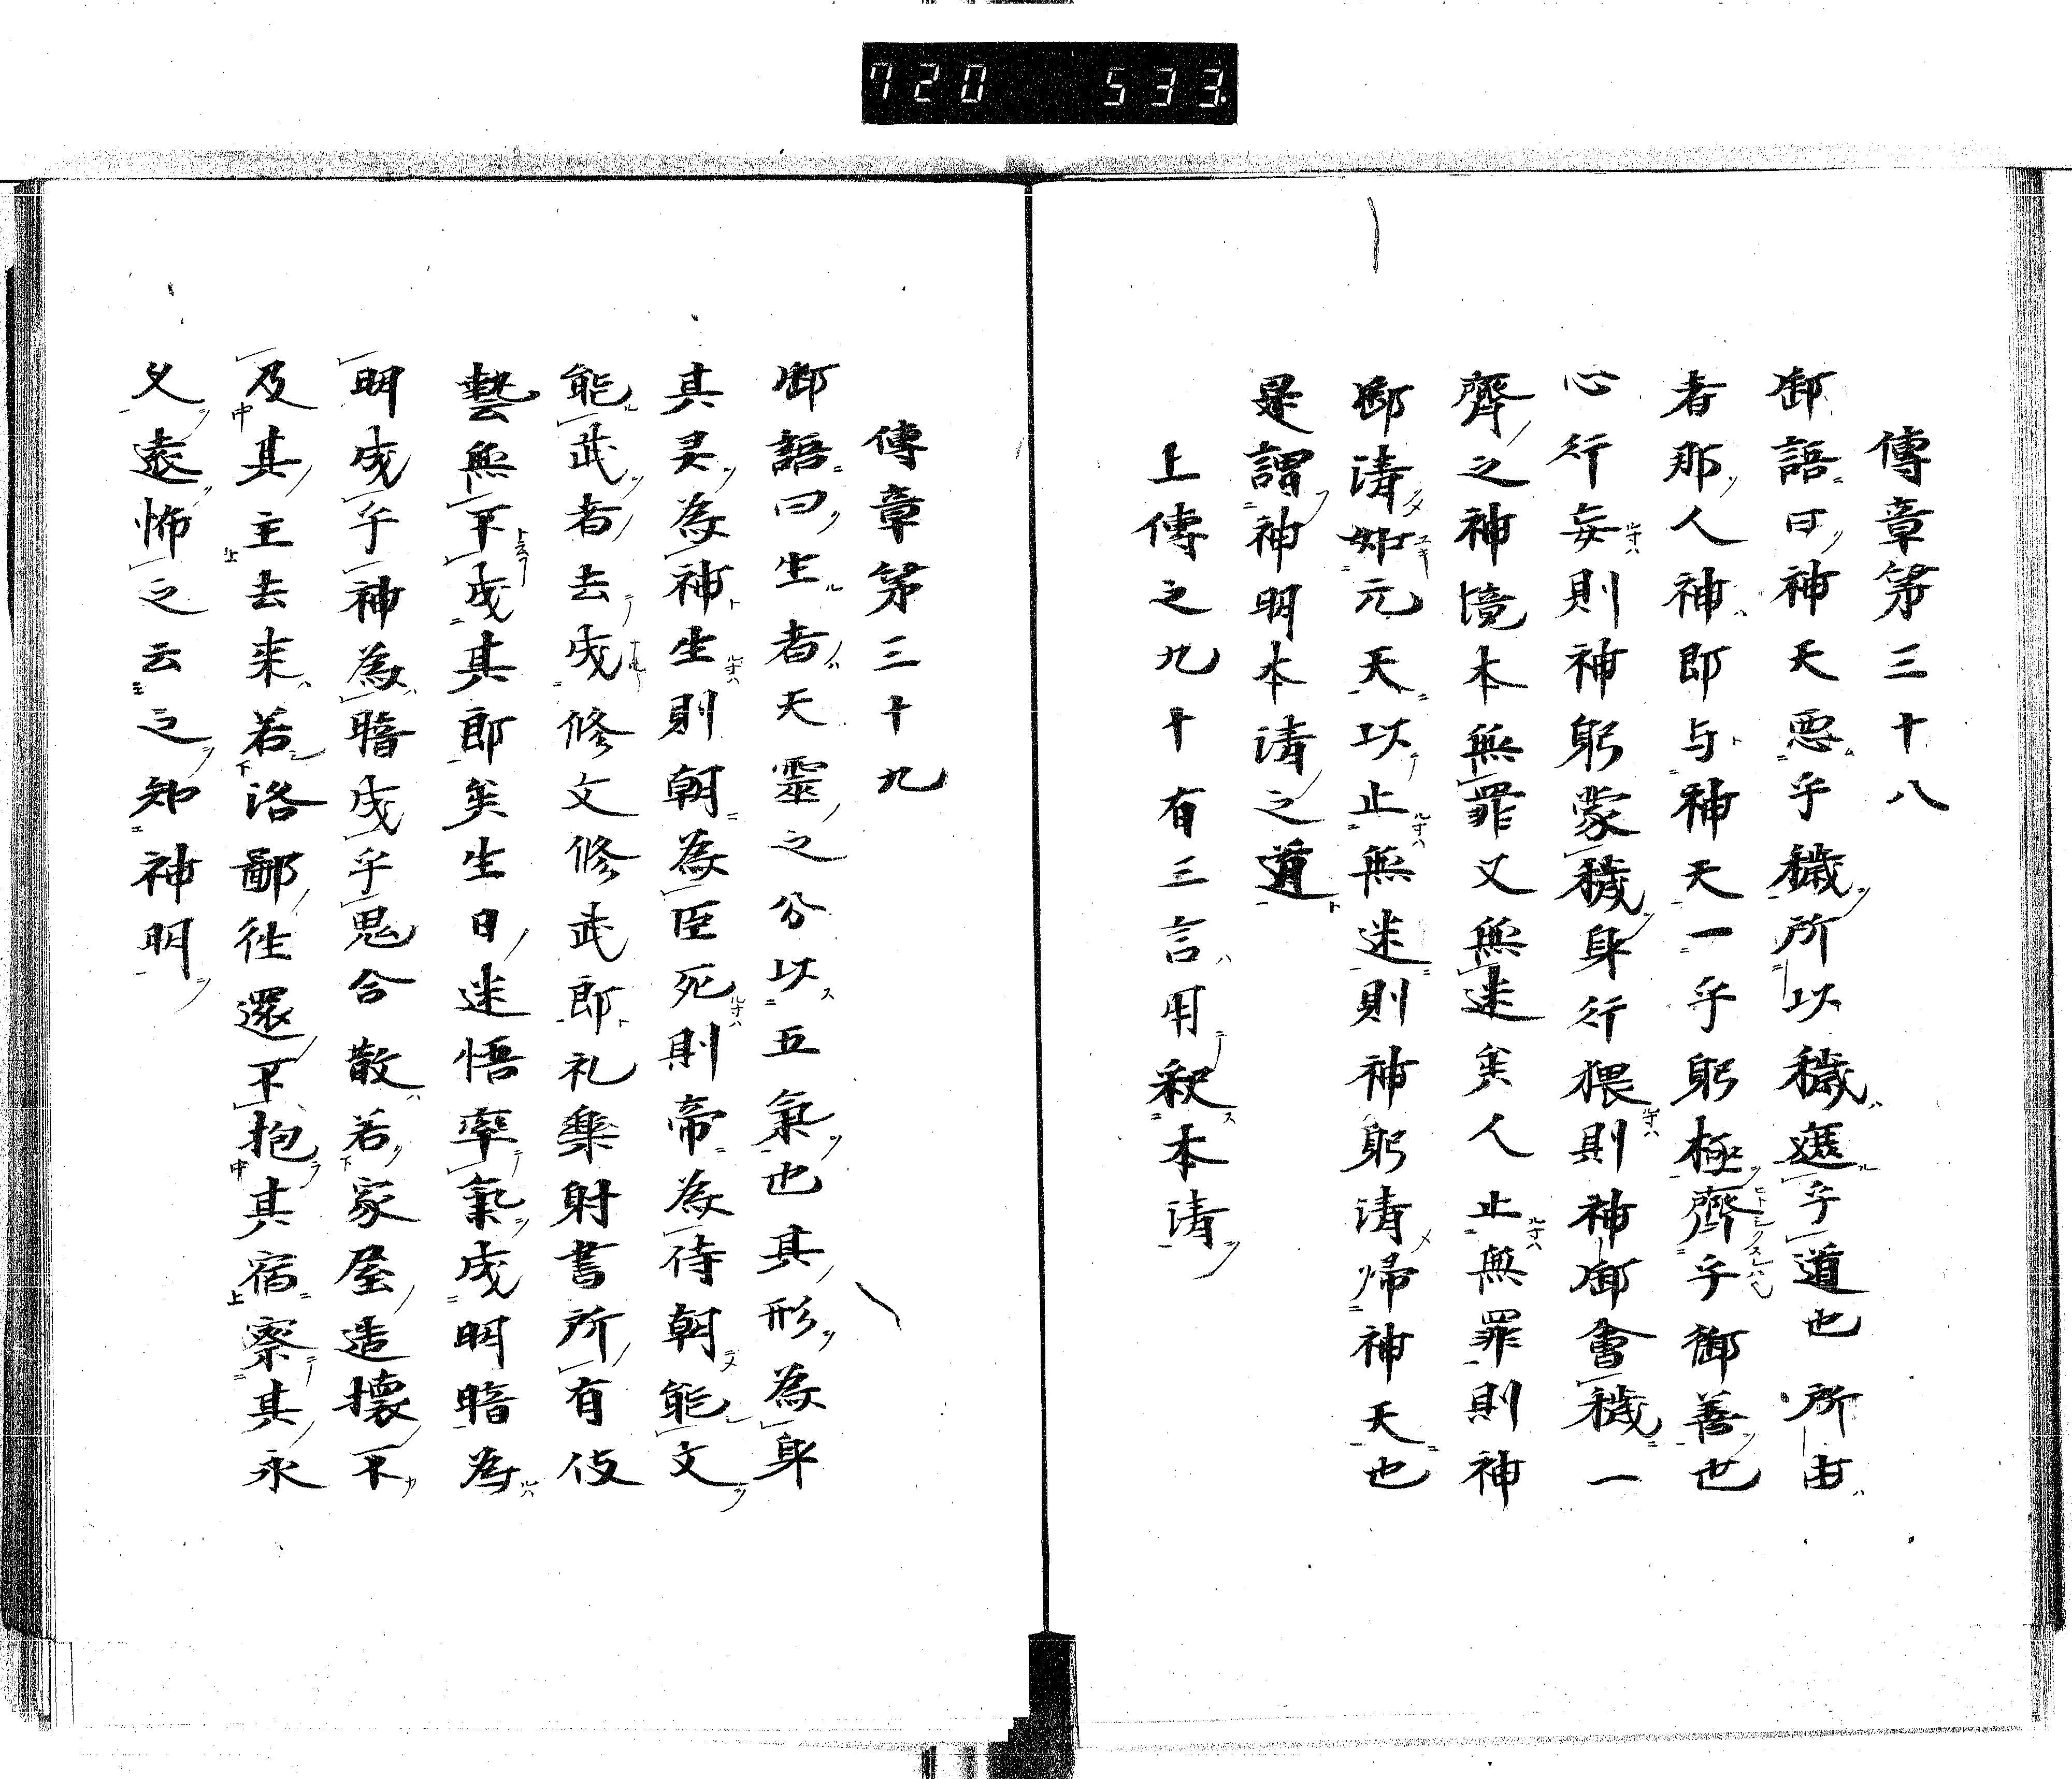 720 533
傳章第三十八
御語曰神天惡乎穢所以穢遮乎道也所由
者那人神即与神天一乎躬極齊乎御善也
心行妄則神躬蒙穢身行猥則神御會穢一
齊之神境本無罪又無迷矣人止無罪則神
御清如元天以止無迷則神躬清帰神天也
是謂神明本清之道
上傳之九十有三言用釈本清
傳章第三十九
御語曰生者天靈之分以五氣也其形為身
其灵為神生則朝為臣死則帝為侍朝能文
能武者去成修文修武郎礼樂射書所有伎
藝無不成其郎矣生日迷悟率氣成明暗為
明成乎神為暗成乎鬼合散若家屋造壞不
及其主去来若洛鄙往還不抱其宿察其永
乂遠怖之云之知神明